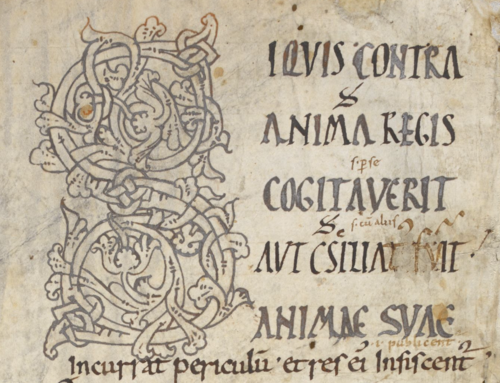 S IQVIS CONTRA
ANIMA REGIS
s. p se
COGITAVERIT
s. cū aliis
AVT C̄SILIAT FVIT
ANIMAE SVAE
i. publicent
Incurrat periculū · et res ei Infiscent